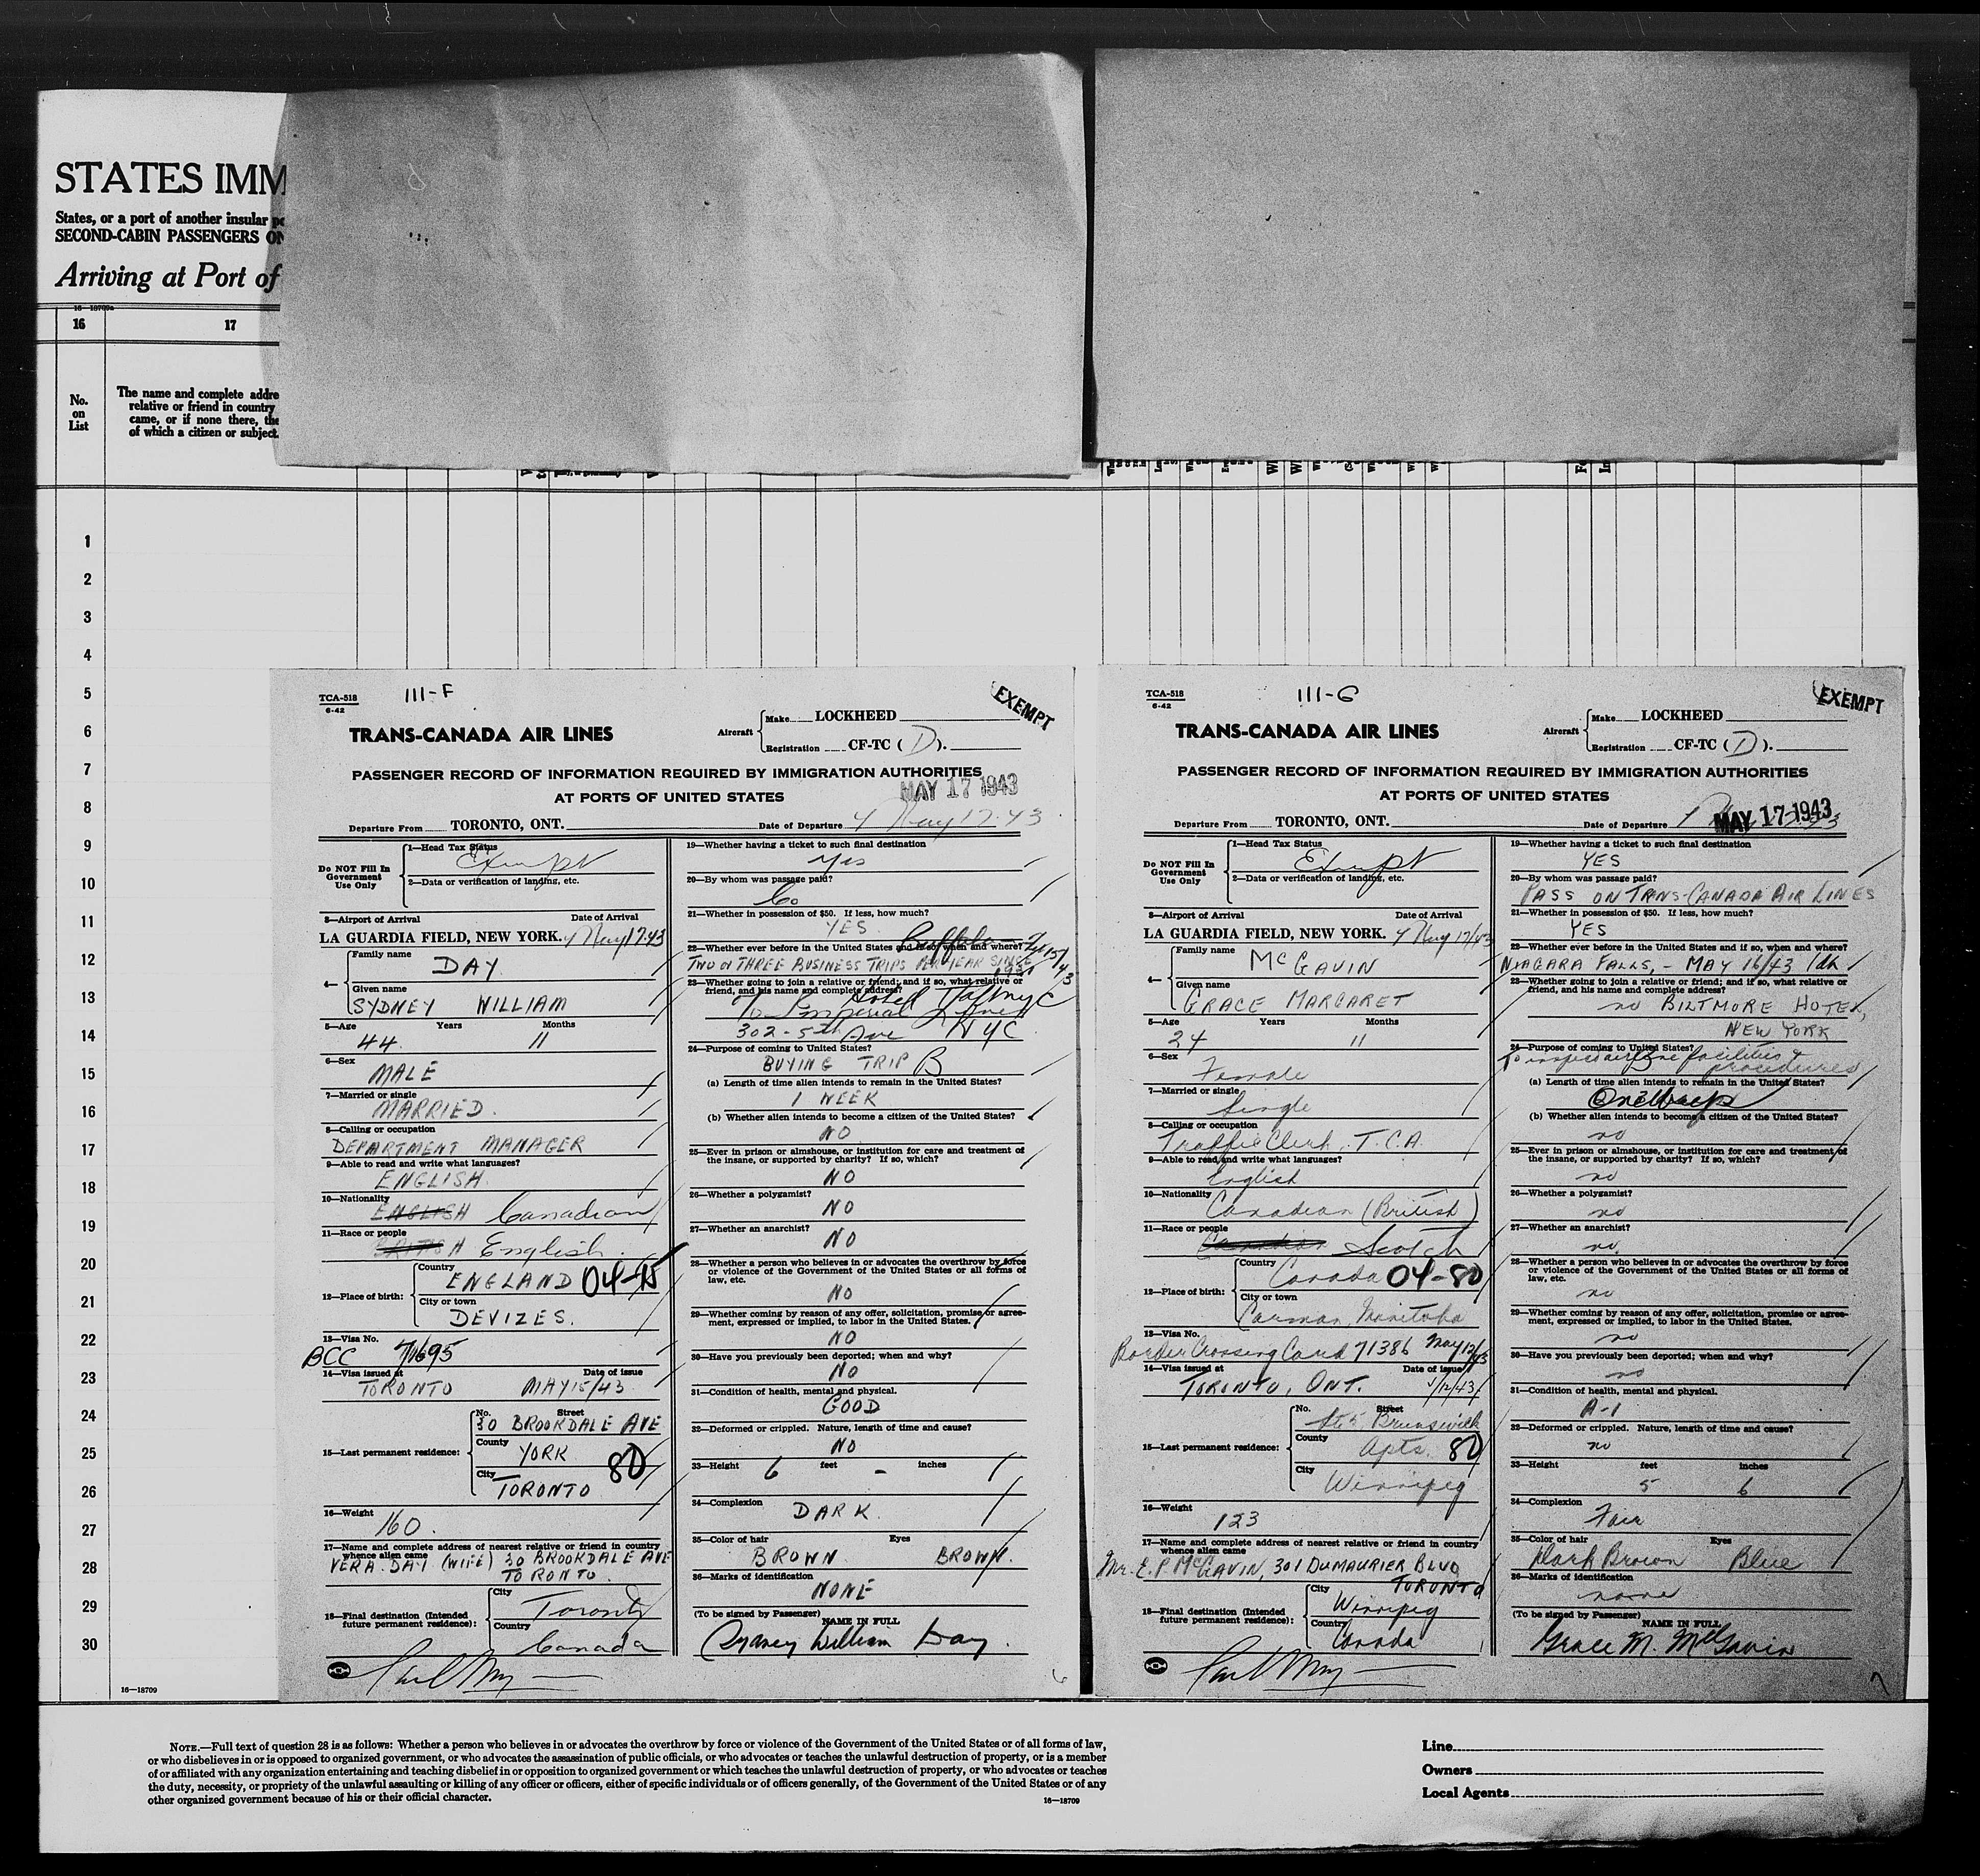 STATES IMM
States, or a port of another insular po
SECOND-CABIN PASSENGERS ON
Arriving at Port of
16—18709a
16 17
No.
on
List
The name and complete addre
relative or friend in country
came, or if none there, the
of which a citizen or subject.
1
2
3
4
5
6
7
8
9
10
11
12
13
14
15
16
17
18
19
20
21
22
23
24
25
26
27
28
29
30
16—18709
TCA-518
6-42
111-F
EXEMPT
TRANS-CANADA AIR LINES
Aircraft
Make LOCKHEED
Registration CF-TC (D).
PASSENGER RECORD OF INFORMATION REQUIRED BY IMMIGRATION AUTHORITIES
AT PORTS OF UNITED STATES
MAY 17 1943
Departure From TORONTO, ONT. Date of Departure May 17.43
Do NOT Fill In
Government
Use Only
1—Head Tax Status
Exempt
2—Data or verification of landing, etc.
3—Airport of Arrival Date of Arrival
LA GUARDIA FIELD, NEW YORK. May 17.43
4—
Family name
DAY
Given name
SYDNEY WILLIAM
5—Age Years Months
44 11
6—Sex
MALE
7—Married or single
MARRIED.
8—Calling or occupation
DEPARTMENT MANAGER
9—Able to read and write what languages?
ENGLISH
10—Nationality
ENGLISH Canadian
11—Race or people
BRITISH English.
12—Place of birth:
Country
ENGLAND 04-15
City or town
DEVIZES.
13—Visa No.
BCC 71695
14—Visa issued at Date of issue
TORONTO MAY 15/43
15—Last permanent residence:
No. Street
30 BROOKDALE AVE
County
YORK 80
City
TORONTO
16—Weight
160.
17—Name and complete address of nearest relative or friend in country
whence alien came
VERA DAY (WIFE) 30 BROOKDALE AVE
TORONTO.
18—Final destination (Intended
future permanent residence):
City
Toronto
Country
Canada
19—Whether having a ticket to such final destination
Yes
20—By whom was passage paid?
Co
21—Whether in possession of $50. If less, how much?
YES.
22—Whether ever before in the United States and if so, when and where?
Buffalo
TWO OR THREE BUSINESS TRIPS PER YEAR SINCE
23—Whether going to join a relative or friend; and if so, what relative or
friend, and his name and complete address?
Hotel Taft NYC
To Imperial
302-5th Ave NYC
24—Purpose of coming to United States?
BUYING TRIP B
(a) Length of time alien intends to remain in the United States?
1 WEEK
(b) Whether alien intends to become a citizen of the United States?
NO
25—Ever in prison or almshouse, or institution for care and treatment of
the insane, or supported by charity? If so, which?
NO
26—Whether a polygamist?
NO
27—Whether an anarchist?
NO
28—Whether a person who believes in or advocates the overthrow by force
or violence of the Government of the United States or all forms of
law, etc.
NO
29—Whether coming by reason of any offer, solicitation, promise or agree-
ment, expressed or implied, to labor in the United States.
NO
30—Have you previously been deported; when and why?
NO
31—Condition of health, mental and physical.
GOOD
32—Deformed or crippled. Nature, length of time and cause?
NO
33—Height 6 feet - inches
34—Complexion
DARK
35—Color of hair Eyes
BROWN BROWN.
36—Marks of identification
NONE
(To be signed by Passenger) NAME IN FULL
Sydney William Day.
6
TCA-518
6-42
111-G
EXEMPT
TRANS-CANADA AIR LINES
Aircraft
Make LOCKHEED
Registration CF-TC (D).
PASSENGER RECORD OF INFORMATION REQUIRED BY IMMIGRATION AUTHORITIES
AT PORTS OF UNITED STATES
Departure From TORONTO, ONT. Date of Departure MAY 17 1943
Do NOT Fill In
Government
Use Only
1—Head Tax Status
Exempt
2—Data or verification of landing, etc.
3—Airport of Arrival Date of Arrival
LA GUARDIA FIELD, NEW YORK. May 17/43
4—
Family name
McGAVIN
Given name
GRACE MARGARET
5—Age Years Months
24 11
6—Sex
Female
7—Married or single
Single
8—Calling or occupation
Traffic Clerk, T.C.A.
9—Able to read and write what languages?
English
10—Nationality
Canadian (British)
11—Race or people
Canadian Scotch
12—Place of birth:
Country
Canada 04-80
City or town
Carman, Manitoba
13—Visa No.
Border Crossing Card 71386 May 12/43
14—Visa issued at Date of issue
TORONTO, ONT. 5/12/43
15—Last permanent residence:
No. Street
Brunswick
County
Apts. 80
City
Winnipeg
16—Weight
123
17—Name and complete address of nearest relative or friend in country
whence alien came
Mr. E.P. McGAVIN, 301 DUMAURIER BLVD
TORONTO
18—Final destination (Intended
future permanent residence):
City
Winnipeg
Country
Canada
19—Whether having a ticket to such final destination
YES
20—By whom was passage paid?
PASS ON TRANS-CANADA AIR LINES
21—Whether in possession of $50. If less, how much?
YES
22—Whether ever before in the United States and if so, when and where?
NIAGARA FALLS, - MAY 16/43 1da
23—Whether going to join a relative or friend; and if so, what relative or
friend, and his name and complete address?
no BILTMORE HOTEL,
NEW YORK
24—Purpose of coming to United States?
To inspect airline facilities &
procedures
(a) Length of time alien intends to remain in the United States?
One Week
(b) Whether alien intends to become a citizen of the United States?
no
25—Ever in prison or almshouse, or institution for care and treatment of
the insane, or supported by charity? If so, which?
no
26—Whether a polygamist?
no
27—Whether an anarchist?
no
28—Whether a person who believes in or advocates the overthrow by force
or violence of the Government of the United States or all forms of
law, etc.
no
29—Whether coming by reason of any offer, solicitation, promise or agree-
ment, expressed or implied, to labor in the United States.
no
30—Have you previously been deported; when and why?
no
31—Condition of health, mental and physical.
A-1
32—Deformed or crippled. Nature, length of time and cause?
no
33—Height feet inches
5 6
34—Complexion
Fair
35—Color of hair Eyes
Dark Brown Blue
36—Marks of identification
none
(To be signed by Passenger) NAME IN FULL
Grace M. McGavin
7
NOTE.—Full text of question 28 is as follows: Whether a person who believes in or advocates the overthrow by force or violence of the Government of the United States or of all forms of law,
or who disbelieves in or is opposed to organized government, or who advocates the assassination of public officials, or who advocates or teaches the unlawful destruction of property, or is a member
of or affiliated with any organization entertaining and teaching disbelief in or opposition to organized government or which teaches the unlawful destruction of property, or who advocates or teaches
the duty, necessity, or propriety of the unlawful assaulting or killing of any officer or officers, either of specific individuals or of officers generally, of the Government of the United States or of any
other organized government because of his or their official character.
16—18709
Line
Owners
Local Agents